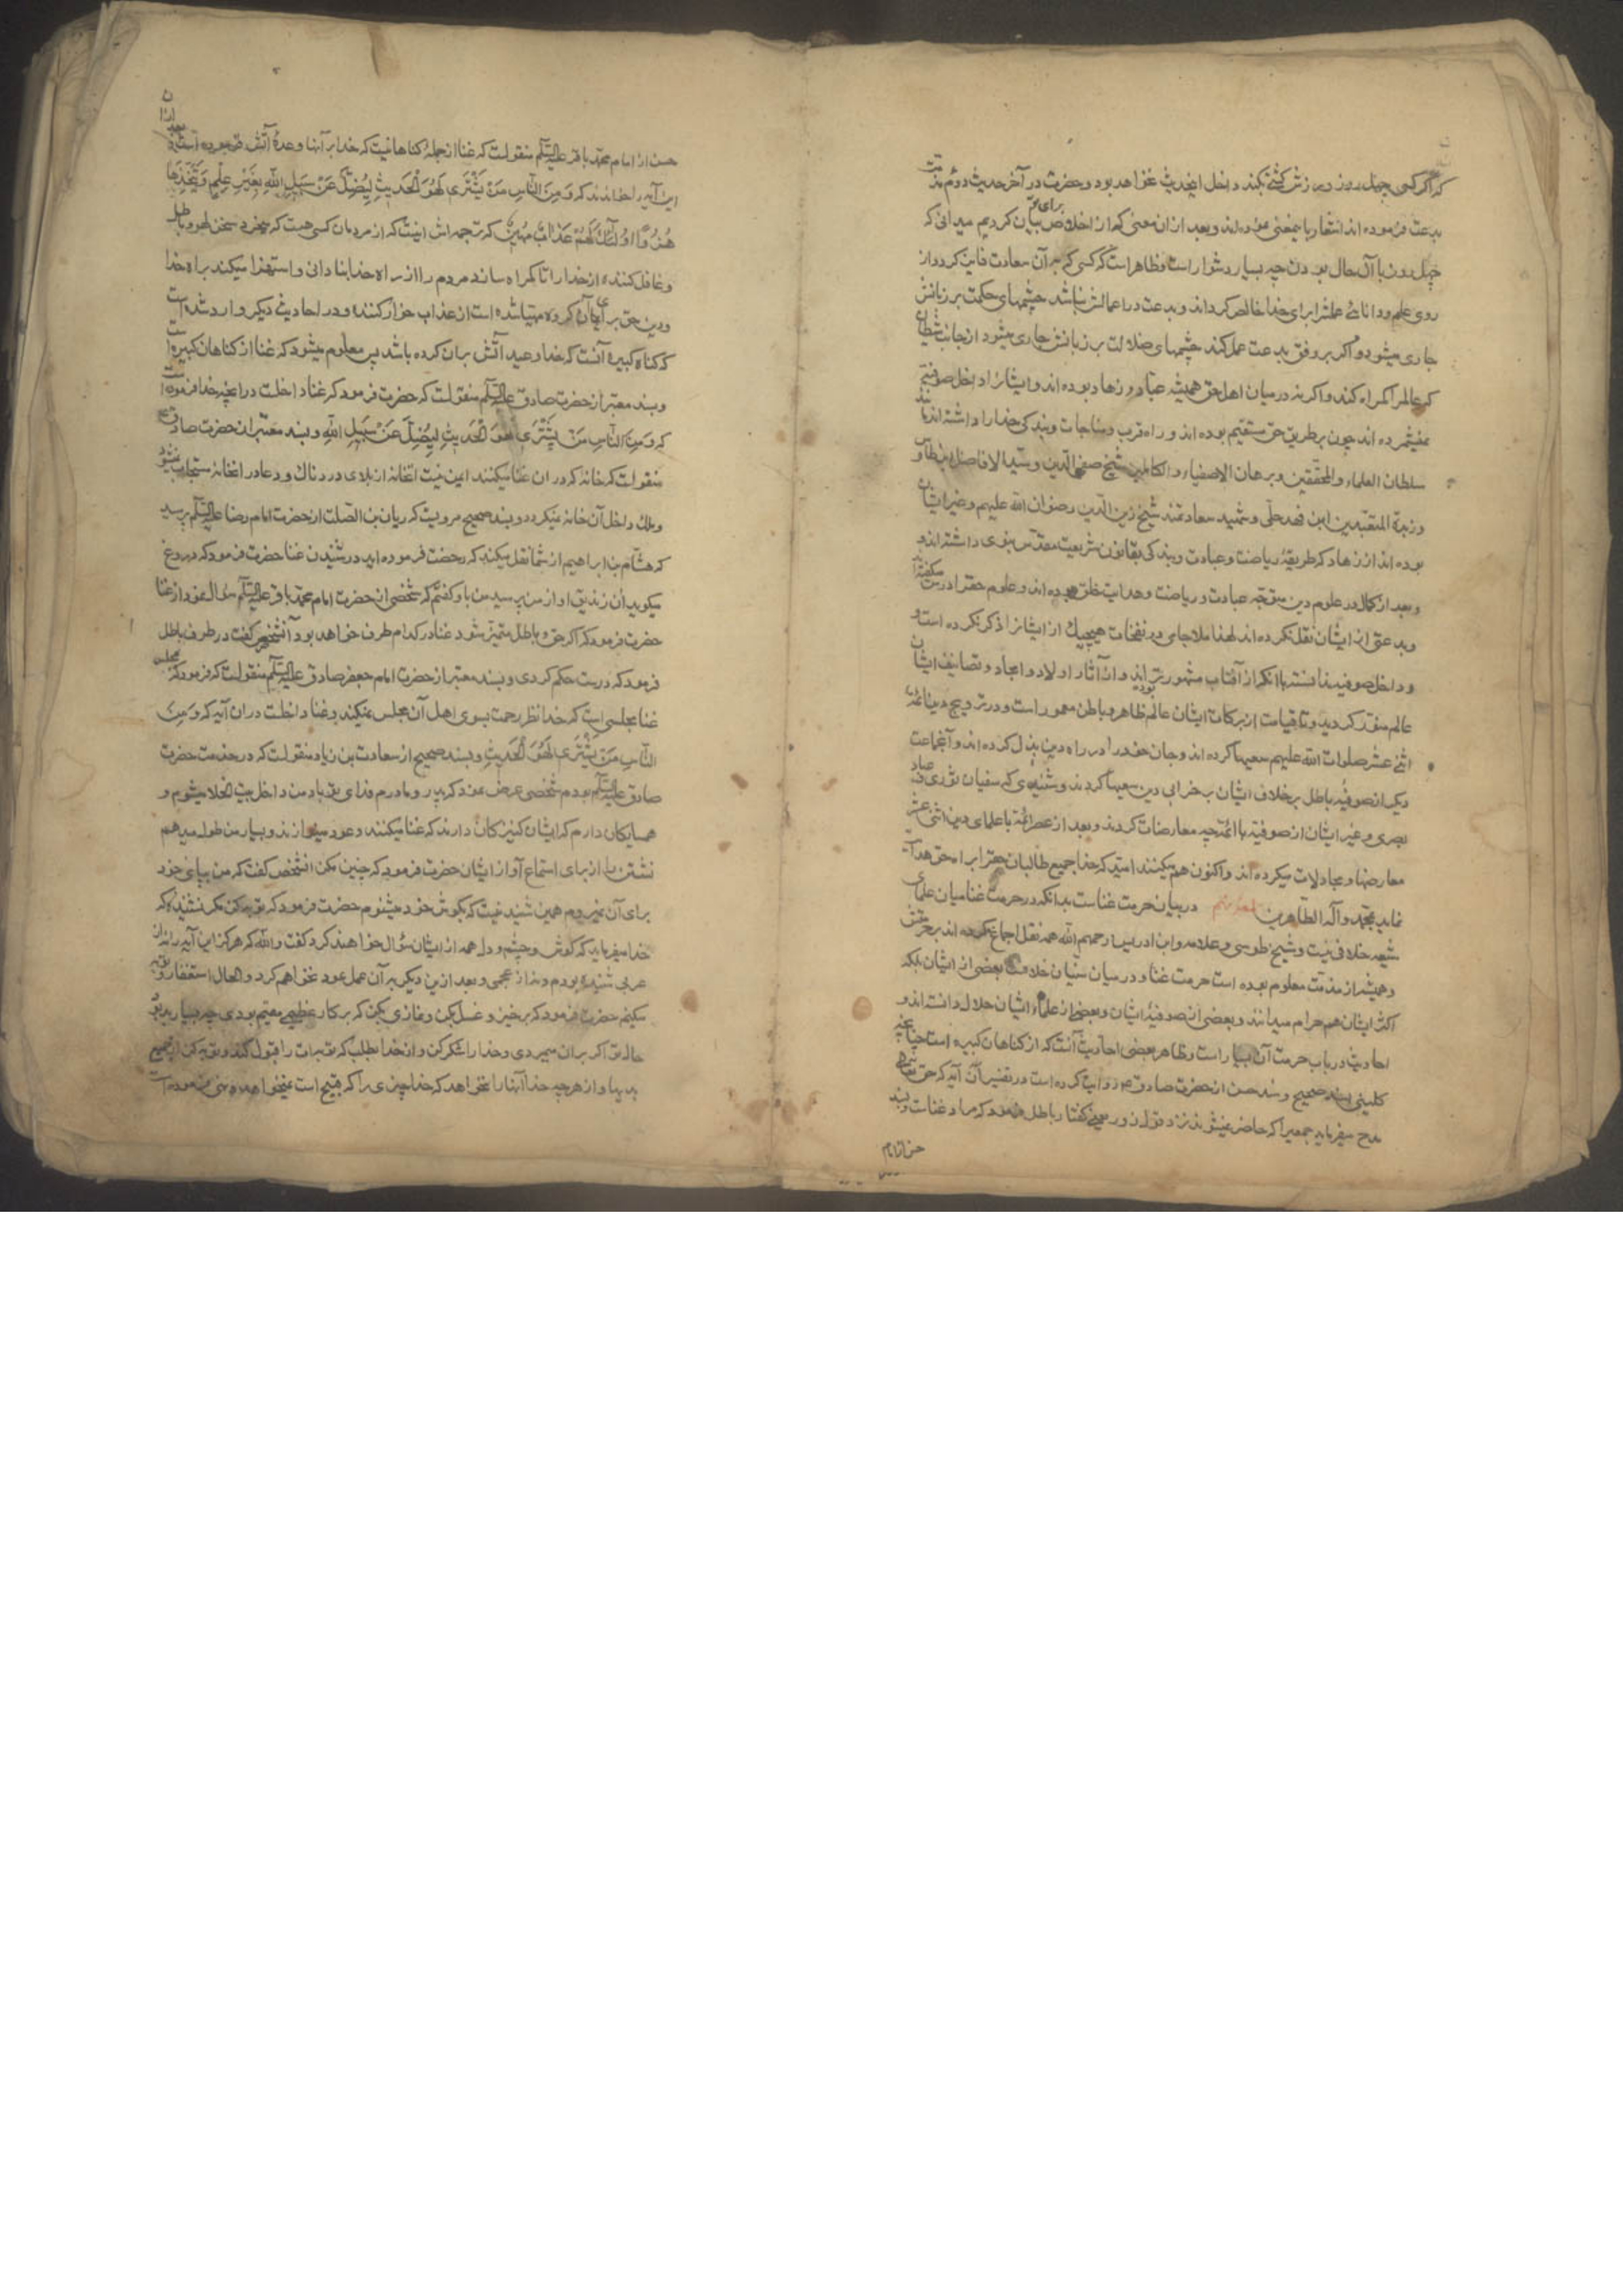 که اگر کسی چهل روز ورزش کشتی بکند داخل اینحدیث نخواهد بود و حضرت در آخر حدیث دوم مذمّت
بدعت فرموده اند اشعار باینمعنی نموده اند و بعد از ان معنی که از اخلاص برای تو بیان کردیم میدانی که
چهل روز با آن حال بودن چه بسیار دشوار است و ظاهر است که کسی که به آن سعادت فایز کردد و از
روی علم و دانائی عملش را برای خدا خالص کرداند و بدعت در اعمالش نباشد چشمهای حکمت بر زبانش
جاری میشود و اکر بر وفق بدعت عمل کند چشمهای ضلالت بر زبانش جاری میشود از جانب شیطان
که عالم را کمراه کند و اکر نه در میان اهل حق همیشه عبّاد و زهاد بوده اند و ایشانرا داخل صوفیّه
نمیشمرده اند چون بر طریق حق مستقیم بوده اند و راه قرب و مناجات و بندکی خدا را داشته اند مانند
سلطان العلماء والمحققین و برهان الاصفیاء والکاملین شیخ صفی الدین و سیّد الافاضل ابن طاوس
و زبدة المتعبّدین ابن فهد حلّی و شهید سعادتمند شیخ زین الدین رضوان الله علیهم و غیر ایشان
بوده اند از زهاد که طریقهٔ ریاضت و عبادت و بندکی بقانون شریعت مقدّس نبوی داشته اند و
و بعد از کمال در علوم دین متوجه عبادت و ریاضت و هدایت خلق بوده اند و علوم حق را درس میکفته اند
و بدعتی از ایشان نقل نکرده اند لهذا ملا جامی در نفحات هیچیک از ایشانرا ذکر نکرده است و
و داخل صوفیه ندانسته با آنکه از آفتاب مشهورتراند و از آثار اولاد و امجاد و تصانیف ایشان
عالم منوّر کردید و تا قیامت از برکات ایشان عالم ظاهر و باطن معمور است و در ترویج دین ائمّه
اثنی عشر صلوات الله علیهم سعیها کرده اند و جان خود را در راه دین بذل کرده اند و آنجماعت
دیکر از صوفیّه باطل بر خلاف ایشان بخرابی دین سعیها کردند و شنیدی که سفیان ثوری و عباد
بصری و غیر ایشان از صوفیّه با ائمّه چه معارضات کردند و بعد از عصر ائمّه با علمای دین اثنی عشر
معارضها و مجادلات میکرده اند و اکنون هم میکنند امید که خدا جمیع طالبان حق را براه حق هدایت
نماید بمحمّد وآله الطاهرین در بیان حرمت غناست بدانکه در حرمت غنا میان علمای
شیعه خلافی نیست و شیخ طوسی و علامه و ابن ادریس رحمهم الله همه نقل اجماع کرده اند بر حرمتش
و همیشه از مذمّت معلوم بوده است حرمت غنا و در میان سنّیان خلافست بعضی از ایشان بلکه
اکثر ایشان هم حرام میدانند و بعضی از صوفیّهٔ ایشان و بعضی از علماء ایشان حلال دانسته اند و
احادیث در باب حرمت آن بسیار است و ظاهر بعضی احادیث آنست که از کناهان کبیره است چنانچه
کلینی بسند صحیح و سند حسن از حضرت صادق ع روایت کرده است در تفسیر آن آیه که حق تعالی
مدح میفرماید جمعی را که حاضر نمیشوند نزد قول زور یعنی کفتار باطل فرمود که مراد غناست و بسند
حسن از امام
حسن از امام محمّد باقر علیه السّلم منقولست که غنا از جملهٔ کناهانیست که خدا بر آنها وعدهٔ آتش فرموده است و
این آیه را خواندند که وَمِنَ النَّاسِ مَنْ یَشْتَرِی لَهْوَ الْحَدِیثِ لِیُضِلَّ عَنْ سَبِیلِ اللهِ بِغَیْرِ عِلْمٍ وَیَتَّخِذَهَا
هُزُوًا اُولٰئِکَ لَهُمْ عَذَابٌ مُهِینٌ که ترجمه اش اینست که از مردمان کسی هست که میخرد سخن لهو و باطل
و غافل کننده از خدا را تا کمراه سازد مردم را از راه خدا بنادانی و استهزا میکند براه خدا
و دین حق برای آن کروه مهیّا شده است از عذاب خوار کننده و در احادیث دیکر وارد شده است
که کناه کبیره آنست که خدا وعید آتش بر ان کرده باشد پس معلوم میشود که غنا از کناهان کبیره است
و بسند معتبر از حضرت صادق علیه السّلم منقولست که حضرت فرمود که غنا داخلست در انچه خدا فرموده است
که وَمِنَ النَّاسِ مَنْ یَشْتَرِی لَهْوَ الْحَدِیثِ لِیُضِلَّ عَنْ سَبِیلِ اللهِ و بسند معتبر از حضرت صادق ع
منقولست که خانه که در ان غنا میکنند ایمن نیست آنخانه از بلای دردناک و دعا در انخانه مستجاب نمیشود
و ملک داخل آن خانه نمیکردد و بسند صحیح مرویست که ریان بن الصّلت از حضرت امام رضا علیه السّلم پرسید
که هشام بن ابراهیم از شما نقل میکند که رخصت فرموده اید در شنیدن غنا حضرت فرمود که دروغ
میکوید آن زندیق او از من پرسید من باو کفتم که شخصی از حضرت امام محمّد باقر علیه السّلم سؤال نمود از غنا
حضرت فرمود که اکر حق و باطل متمیّز شود غنا در کدام طرف خواهد بود آنشخص کفت در طرف باطل
فرمود که درست حکم کردی و بسند معتبر از حضرت امام جعفر صادق علیه السّلم منقولست که فرمود که مجلس
غنا مجلسی است که خدا نظر رحمت بسوی اهل آن مجلس نمیکند و غنا داخلست در ان آیه که وَ مِنَ
النَّاسِ مَنْ یَشْتَرِی لَهْوَ الْحَدِیثِ و بسند صحیح از سعادت بن زیاد منقولست که در خدمت حضرت
صادق علیه السّلم بودم شخصی عرض نمود که پدر و مادرم فدای تو باد من داخل بیت الخلا میشوم و
همسایکان دارم که ایشان کنیزکان دارند که غنا میکنند و عود مینوازند و بسیار من طول میدهم
نشستن را از برای استماع آواز ایشان حضرت فرمود که چنین مکن انشخص کفت که من بپای خود
برای آن نمیروم همین شنیدنیست که بکوش خود میشنوم حضرت فرمود که تو مکر نشنیدهٔ که
خدا میفرماید که کوش و چشم و دل همه از ایشان سؤال خواهند کرد کفت والله که هرکز این آیه را نه از
عربی شنیده بودم و نه از عجمی و بعد ازین دیکر به آن عمل عود نخواهم کرد و الحال استغفار و توبه
میکنم حضرت فرمود که برخیز و غسل بکن و نمازی بکن که بر کار عظیمی مقیم بودی چه بسیار بد بود
حال تو اکر بر ان میمردی و خدا را شکر کن و از خدا بطلب که توبه ات را قبول کند و توبه کن از جمیع
بدیها و از هر چه خدا آنها را نخواهد که خدا چیزی را که قبیح است نمیخواهد و نهی فرموده است